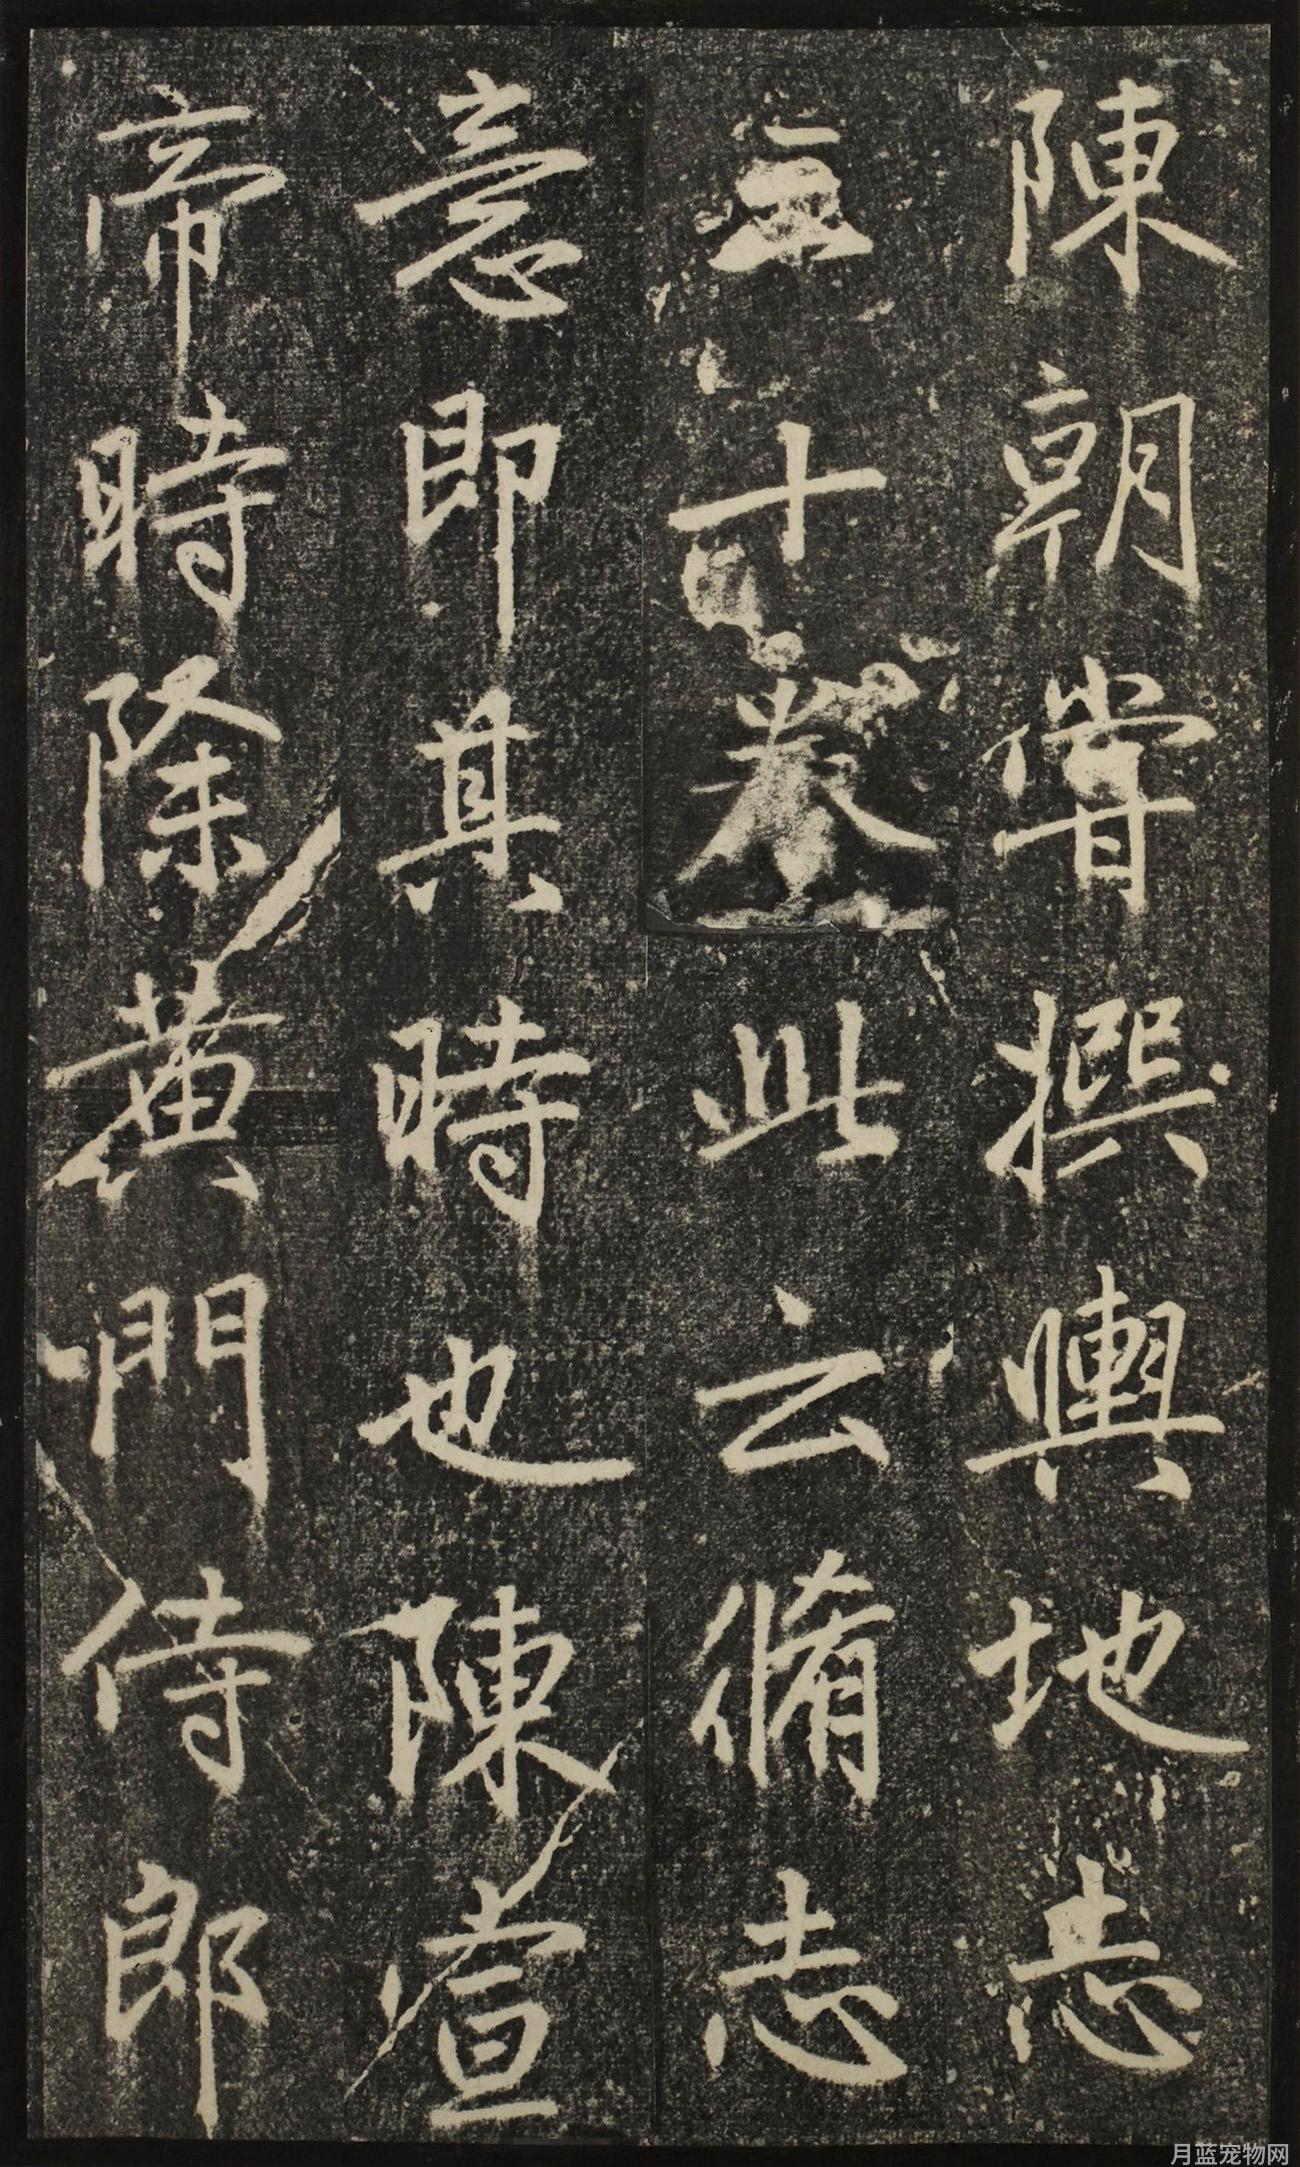 陳朝嘗撰輿地志
三十卷此云脩志
意即其時也陳宣
帝時除黃門侍郎
月蓝宠物网